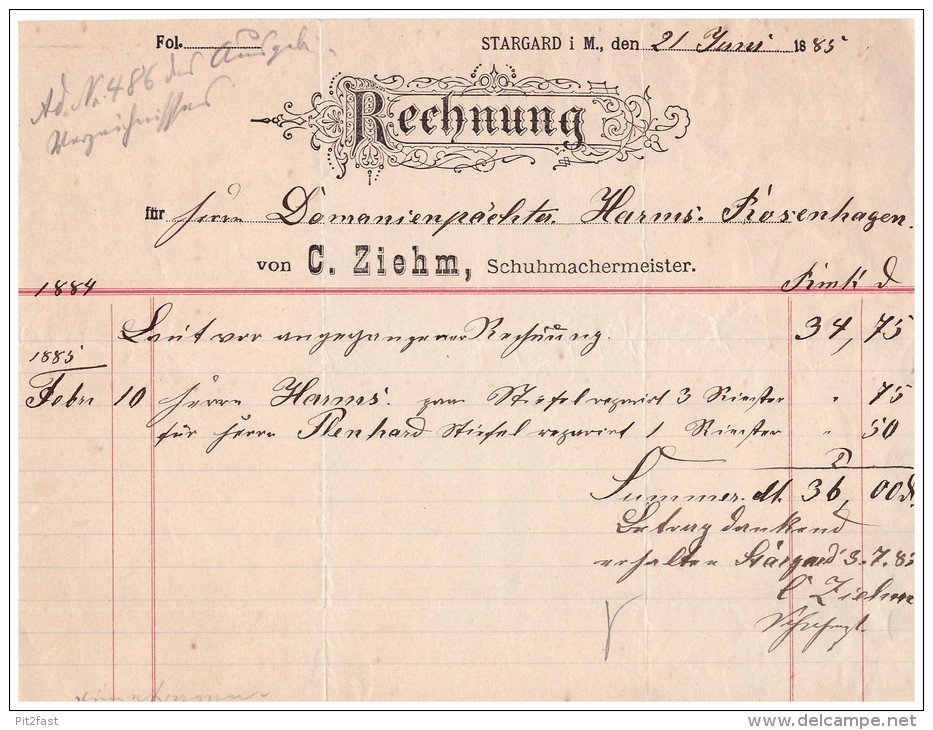 Fol.
STARGARD i M., den 21 Juni 1885
Ad. Nr. 486 des Ausgabe
Verzeichnisses
Rechnung
für Herrn Domanienpächter Harms. Rosenhagen.
von C. Ziehm, Schuhmachermeister.
1884
Laut vor angegangener Rechnung. 34,75
1885
Febr 10 Herrn Harms. paar Stiefel reparirt 3 Riester " 75
für Herrn Plenhard Stiefel reparirt 1 Riester " 50
Summe M. 36,00 d.
Betrag dankend
erhalten Stargard 3.7.85
C Ziehm
Pit2fast
delcampe.net